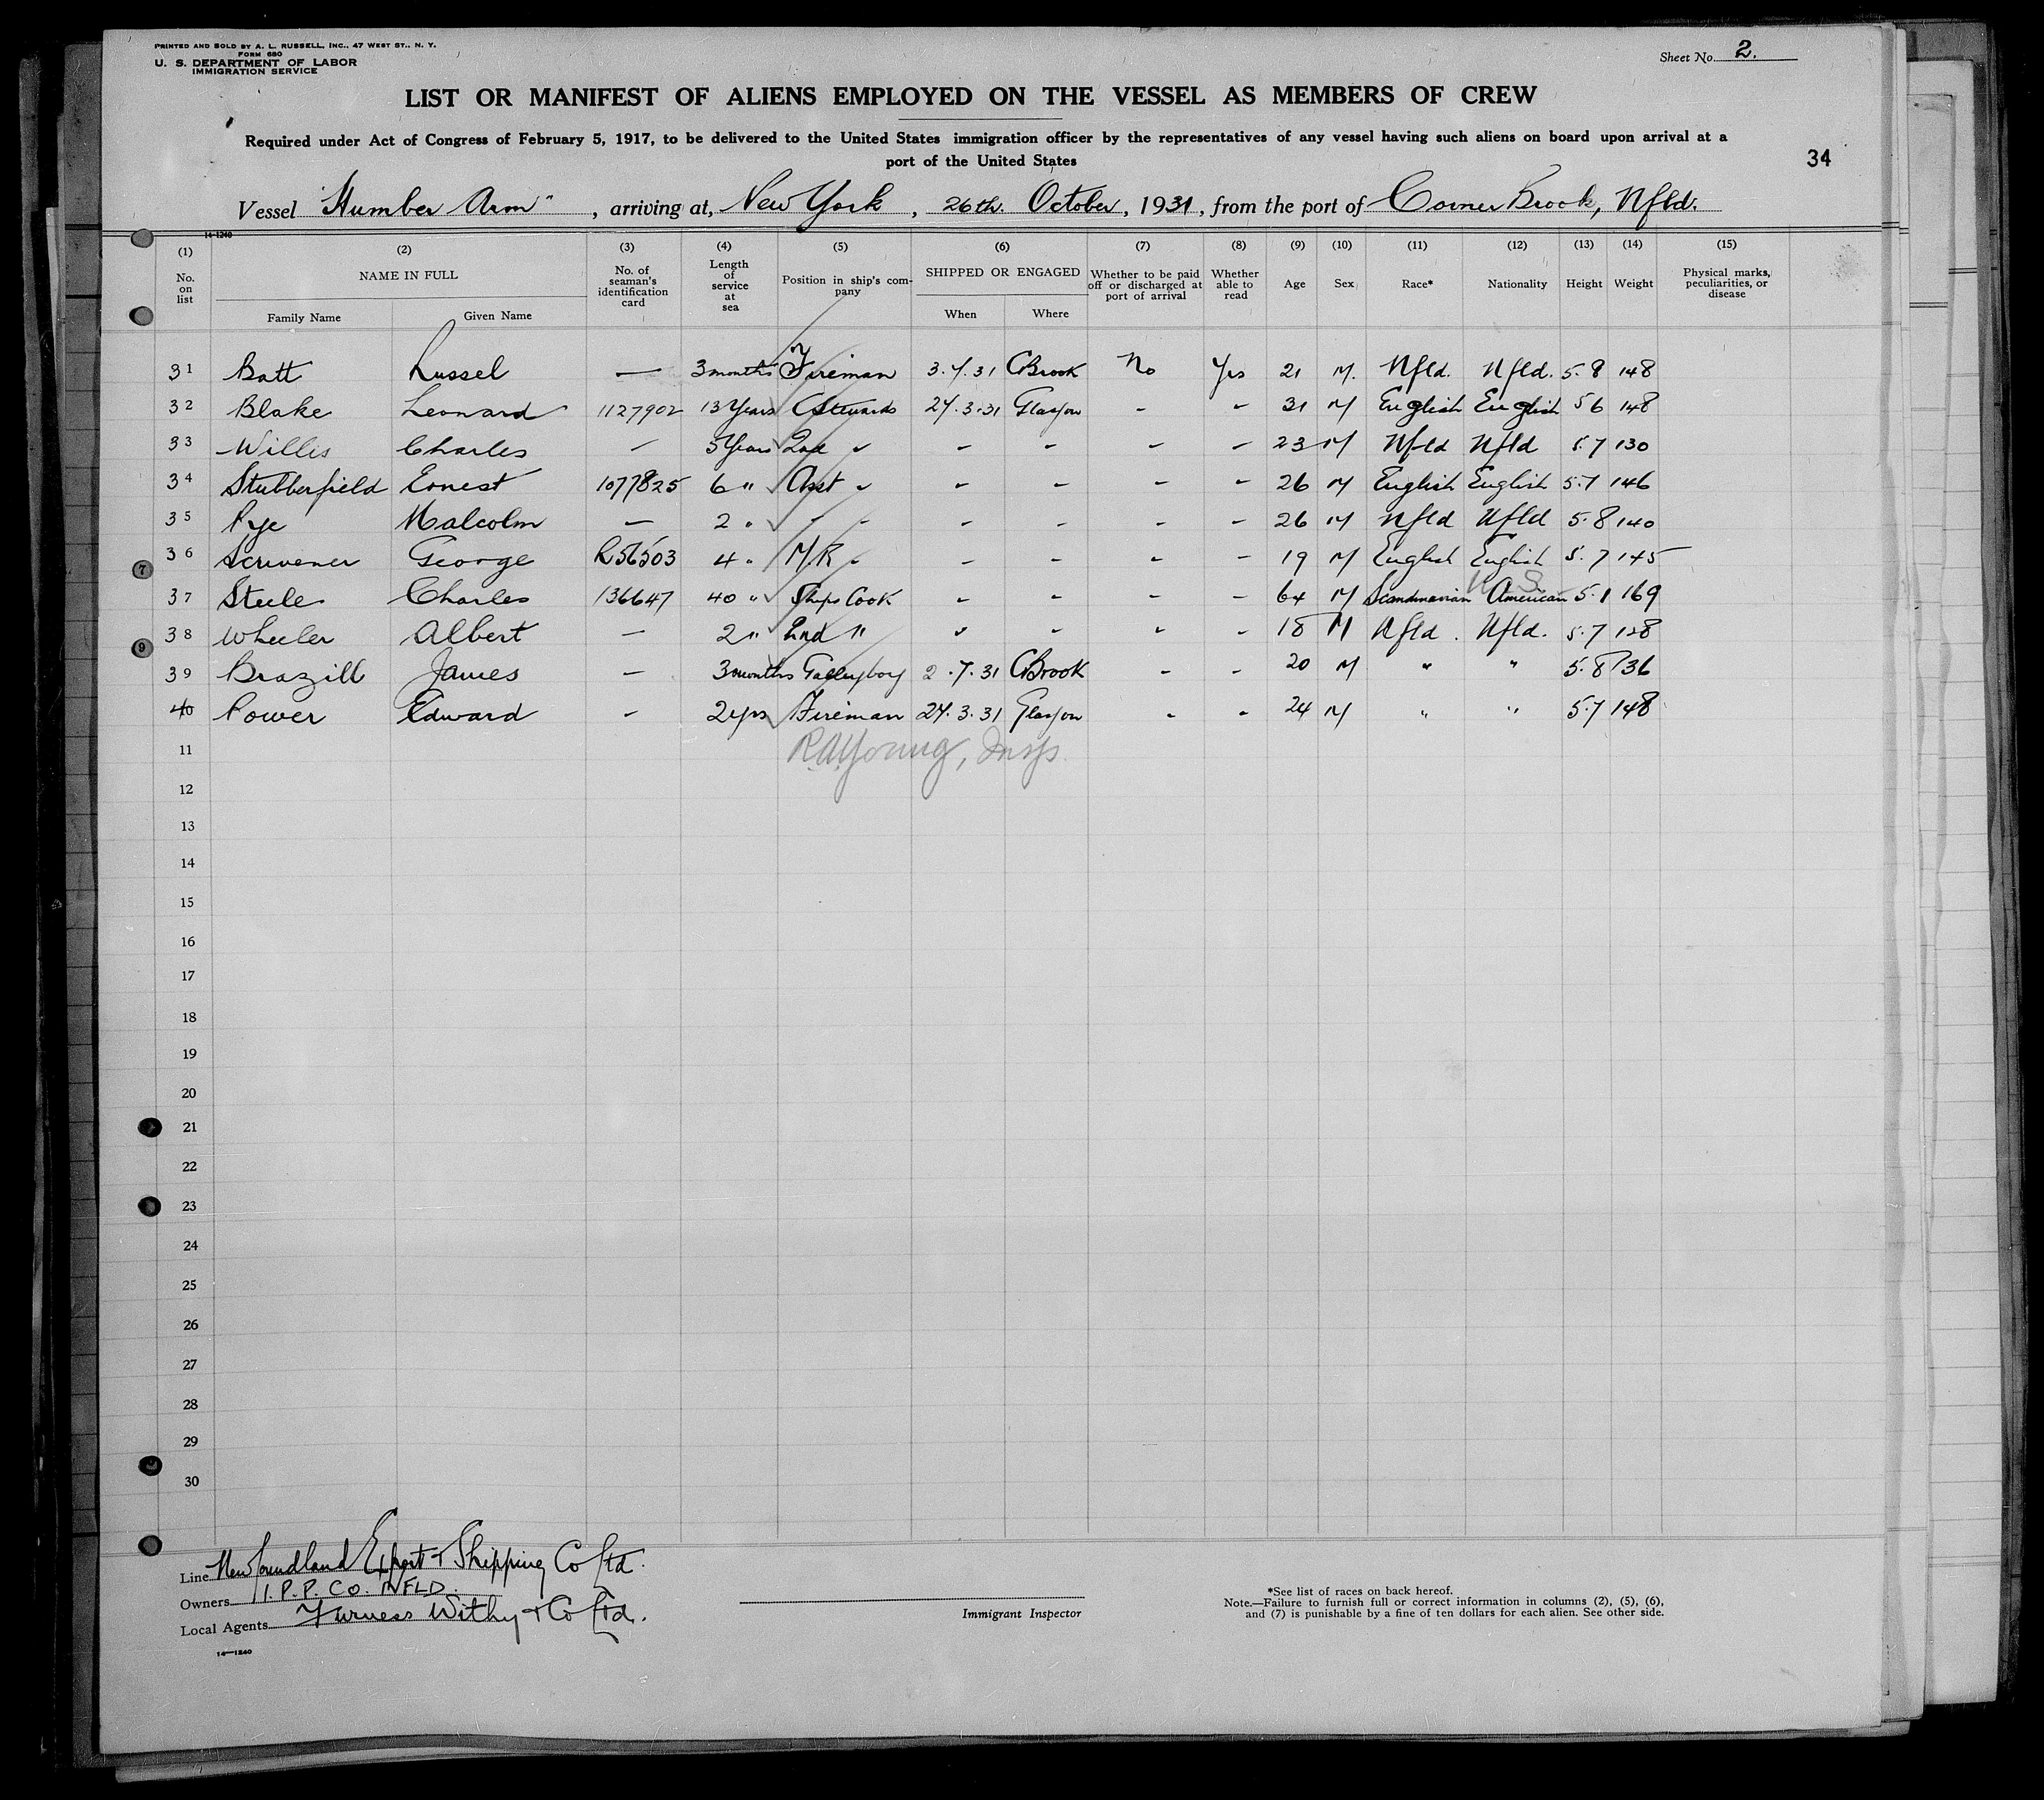 PRINTED AND SOLD BY A. L. RUSSELL, INC., 47 WEST ST., N. Y.
FORM 680
U. S. DEPARTMENT OF LABOR
IMMIGRATION SERVICE
Sheet No. 2.
LIST OR MANIFEST OF ALIENS EMPLOYED ON THE VESSEL AS MEMBERS OF CREW
Required under Act of Congress of February 5, 1917, to be delivered to the United States immigration officer by the representatives of any vessel having such aliens on board upon arrival at a
port of the United States
34
Vessel "Humber Arm", arriving at, New York, 26th. October, 1931, from the port of Corner Brook, Nfld.
14-1240
(1) (2) (3) (4) (5) (6) (7) (8) (9) (10) (11) (12) (13) (14) (15)
No. on list
NAME IN FULL
Family Name Given Name
No. of seaman's identification card
Length of service at sea
Position in ship's company
SHIPPED OR ENGAGED
When Where
Whether to be paid off or discharged at port of arrival
Whether able to read
Age Sex Race* Nationality Height Weight
Physical marks, peculiarities, or disease
31 Batt Russel — 3 months Fireman 3.7.31 CBrook No Yes 21 M. Nfld. Nfld. 5.8 148
32 Blake Leonard 1127902 13 Years C Stewards 27.3.31 Glasgow - - 31 M English English 5 6 148
33 Willis Charles - 5 Years 2nd " - - - - 23 M Nfld Nfld 5.7 130
34 Stubberfield Ernest 1077825 6 " Asst " - - - - 26 M English English 5.7 146
35 Pye Malcolm — 2 " - - - - - - 26 M Nfld Nfld 5.8 140
36 Scrivener George R56503 4 " M.R " - - - - 19 M English English 5.7 145
37 Steele Charles 136647 40 " Ships Cook - - - - 64 M Scandinavian American 5.1 169
38 Wheeler Albert — 2 " 2nd " " - - - 18 M Nfld. Nfld. 5.7 128
39 Brazill James — 3 months Galleyboy 2.7.31 CBrook - - 20 M " " 5.8 136
40 Power Edward - 2 yrs Fireman 27.3.31 Glasgow - - 24 M " " 5.7 148
11 R.A.Young, Insp.
12
13
14
15
16
17
18
19
20
21
22
23
24
25
26
27
28
29
30
Line Newfoundland Export & Shipping Co Ltd.
Owners I.P.P. Co. NFLD.
Local Agents Furness Withy & Co Ltd.
14—1240
Immigrant Inspector
*See list of races on back hereof.
Note.—Failure to furnish full or correct information in columns (2), (5), (6),
and (7) is punishable by a fine of ten dollars for each alien. See other side.